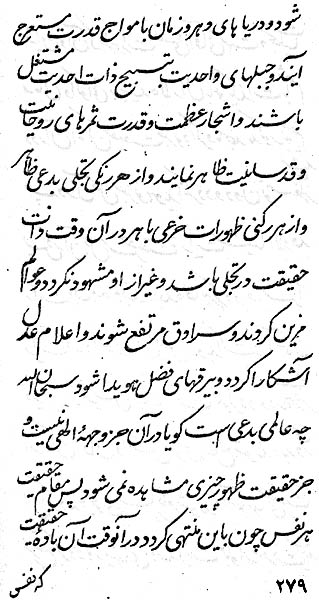 شود و دریاهای دهر و زمان بامواج قدرت متعرج
آیند و جبلهای واحدیت بتسبیح ذات احدیت مشتغل
باشند و اشجار عظمت و قدرت ثمرهای روحانیت
و قدسانیت ظاهر نمایند و از هر رنگی تجلی بدعی ظاهر
و از هر کنی ظهورات خرعی باهر در آن وقت ذات
حقیقت در تجلی باشد و غیر از او مشهود نکردد و عوالم
مزین کردند و سرادق مرتفع شوند و اعلام عدل
آشکارا کردد و بیرقهای فضل هویدا شود سبحان الله
چه عالمی بدعی است که کویا در آن جز وجههٔ الهی نیست و
جز حقیقت ظهور چیزی مشاهده نمی شود پس مقام حقیقت
هر نفس چون باین منتهی کردد در آنوقت آن باده حقیقت
۲۷۹
که نفس